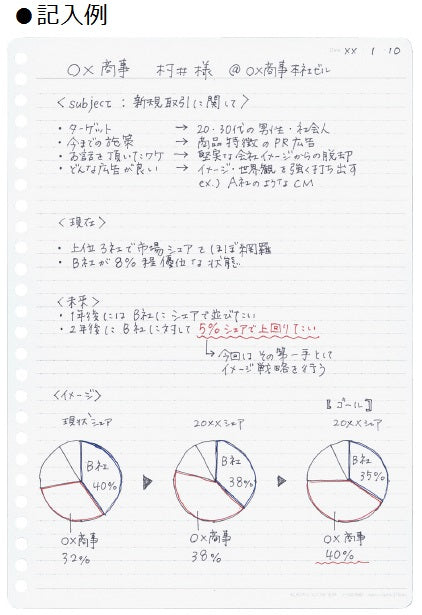 ●記入例
Date XX 1 10
〇×商事 村井様 @〇×商事本社ビル
<subject：新規取引に関して>
・ターゲット → 20・30代の男性・社会人
・今までの施策 → 商品特徴のPR広告
・お話を頂いたワケ → 堅実な会社イメージからの脱却
・どんな広告が良い → イメージ・世界観を強く打ち出す
ex.) A社のようなCM
<現在>
・上位3社で市場シェアをほぼ網羅
・B社が8%程優位な状態
<未来>
・1年後にはB社にシェアで並びたい
・2年後にB社に対して5%シェアで上回りたい
↳今回はその第一手として
イメージ戦略を行う
<イメージ>
〖ゴール〗
現状シェア 20XXシェア 20XXシェア
B社 40% B社 38% B社 35%
〇×商事 〇×商事 〇×商事
32% 38% 40%